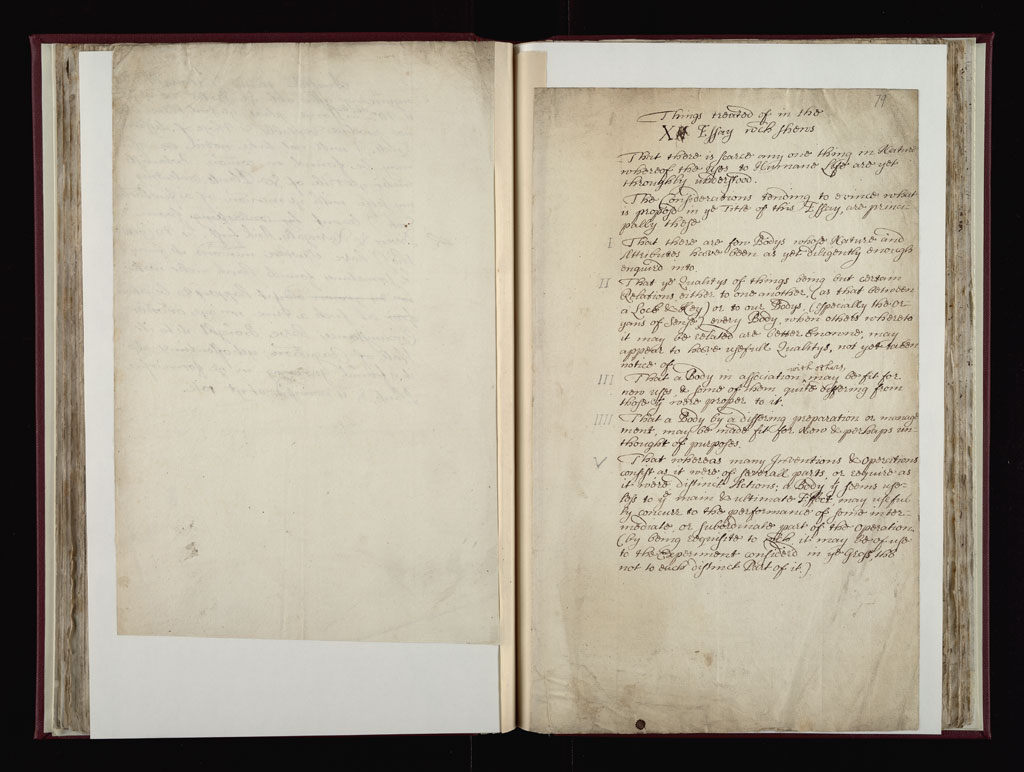 79
Things treated of in the
X Essay wch shews
That there is scarce any one thing in Nature
whereof the Uses to Humane Life are yet
throughly understood.
The Considerations tending to evince what
is propos'd in ye Title of this Essay, are princi-
pally these
I That there are few Bodys whose Nature and
Attributes have been as yet diligently enough
enquird into.
II That ye Qualitys of things being but certain
Relations either to one another, (as that between
a Lock & Key) or to our Bodys, (especially the or-
gans of Sense) every Body, when others whereto
it may be related are better knowne, may
appear to have usefull Qualitys, not yet taken
notice of.
with others,
III That a Body in association, may be fit for
new uses & some of them quite differing from
those yt were proper to it.
IIII That a Body by a differing preparation or manag-
ment, may be made fit for New & perhaps un-
thought of purposes.
V That whereas many Inventions & Operations
consist as it were of severall parts, or require as
it were distinct Actions; a Body yt seems use-
less to ye main & ultimate Effect may useful-
ly concurr to the performance of some inter-
mediate, or subordinate part of the Operation
(by being requisite to wch it may be of use
to the Experiment considerd in ye Gross, tho
not to each distinct Part of it.)